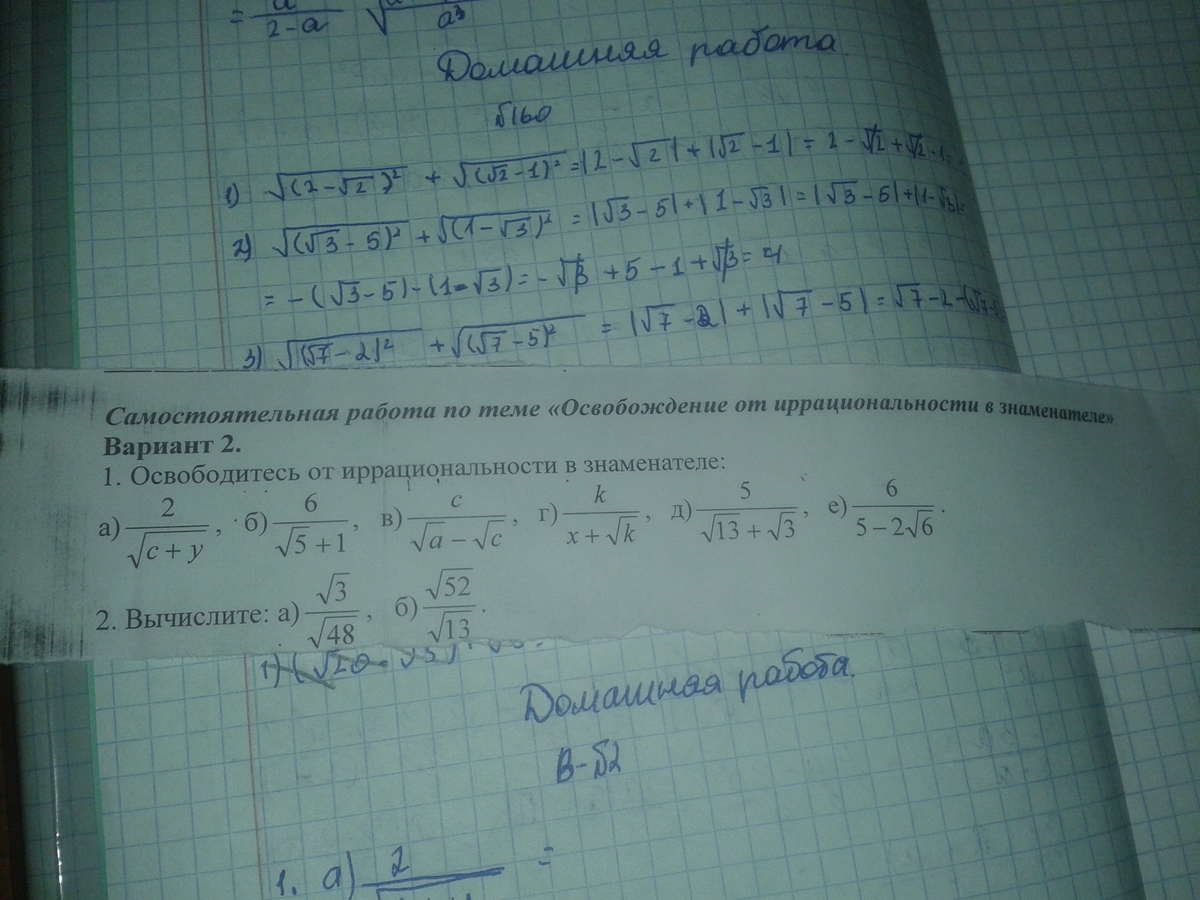 = a/(2-a) √
a³
Домашняя работа
№160
1) √((2-√2)²) + √((√2-1)²) = |2-√2| + |√2-1| = 2-√2+√2-1=
2) √((√3-5)²) + √((1-√3)²) = |√3-5| + |1-√3| = |√3-5|+|1-√3|=
= -(√3-5)-(1-√3) = -√3+5-1+√3 = 4
3) √((√7-2)²) + √((√7-5)²) = |√7-2| + |√7-5| = √7-2-(√7-5
Самостоятельная работа по теме «Освобождение от иррациональности в знаменателе»
Вариант 2.
1. Освободитесь от иррациональности в знаменателе:
а) 2/√(c+y), б) 6/(√5+1), в) c/(√a-√c), г) k/(x+√k), д) 5/(√13+√3), е) 6/(5-2√6).
2. Вычислите: а) √3/√48, б) √52/√13.
1) (√20
Домашняя работа.
В-№2
1. а) 2 =